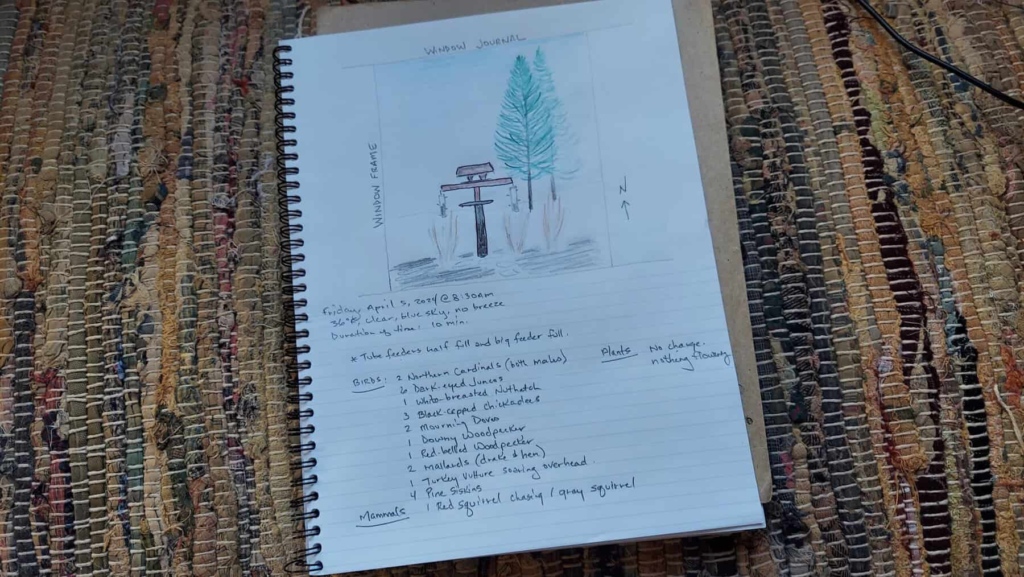 WINDOW JOURNAL
WINDOW FRAME
N
Friday, April 5, 2024 @ 8:30am
36°F, clear, blue sky, no breeze
Duration of time: 10 min.
* Tube feeders half full and big feeder full.
BIRDS: 2 Northern Cardinals (both males)
6 Dark-eyed Juncos
1 White-breasted Nuthatch
3 Black-capped Chickadees
2 Mourning Doves
1 Downy Woodpecker
1 Red-bellied Woodpecker
2 Mallards (drake & hen)
1 Turkey Vulture soaring overhead.
4 Pine Siskins
Mammals 1 Red squirrel chasing 1 gray squirrel
Plants No change.
nothing flowering